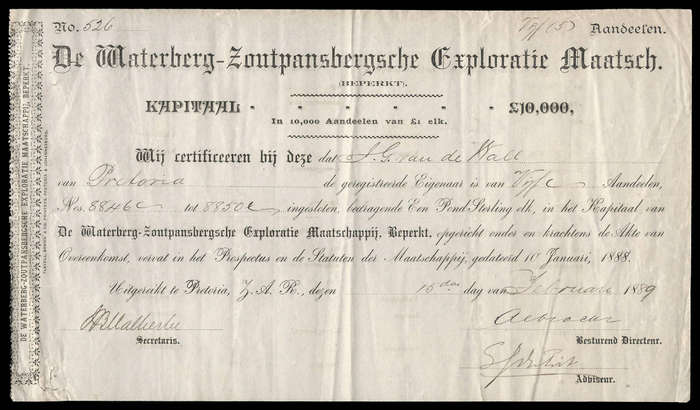 No. 526 Aandeelen.
De Waterberg-Zoutpansbergsche Exploratie Maatsch.
(BEPERKT.)
KAPITAAL " " " " " " £10,000,
In 10,000 Aandeelen van £1 elk.
Wij certificeeren bij deze dat J. G. van de Wall
van Pretoria de geregistreerde Eigenaar is van Vyf Aandeelen,
Nos. 8846 tot 8850 ingesloten, bedragende Een Pond Sterling elk, in het Kapitaal van
De Waterberg-Zoutpansbergsche Exploratie Maatschappij, Beperkt, opgericht onder en krachtens de Akte van
Overeenkomst, vervat in het Prospectus en de Statuten der Maatschappij, gedateerd 10 Januari, 1888.
Uitgereikt te Pretoria, Z. A. R., dezen 15den dag van Februari 1889
Secretaris.
Besturend Directeur.
Adviseur.
DE WATERBERG-ZOUTPANSBERGSCHE EXPLORATIE MAATSCHAPPIJ, BEPERKT.